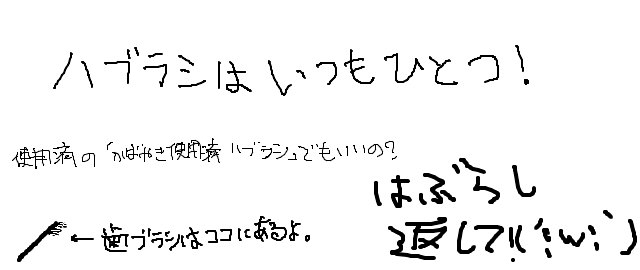 ハブラシはいつもひとつ!
使用済の「かばやき使用済ハブラシ」でもいいの?
はぶらし
返して!!(´;ω;`)
←歯ブラシはココにあるよ。